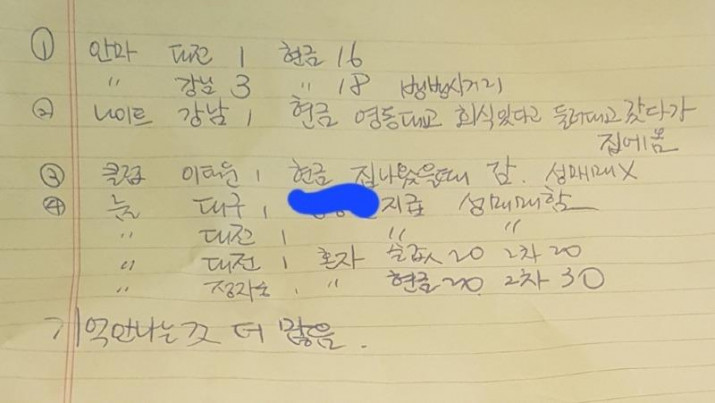 ① 안마 대전 1 현금 16
〃 강남 3 〃 18
② 나이트 강남 1 현금 영동대교 회식있다고 둘러대고 갔다가
집에옴
③ 클럽 이태원 1 현금 집나왔을때 감. 성매매X
④ 룸 대구 1 지급 성매매함
〃 대전 1 〃 〃
〃 대전 1 혼자 술값 20 2차 20
〃 정자동 1 〃 현금 20 2차 30
기억안나는것 더 많음.